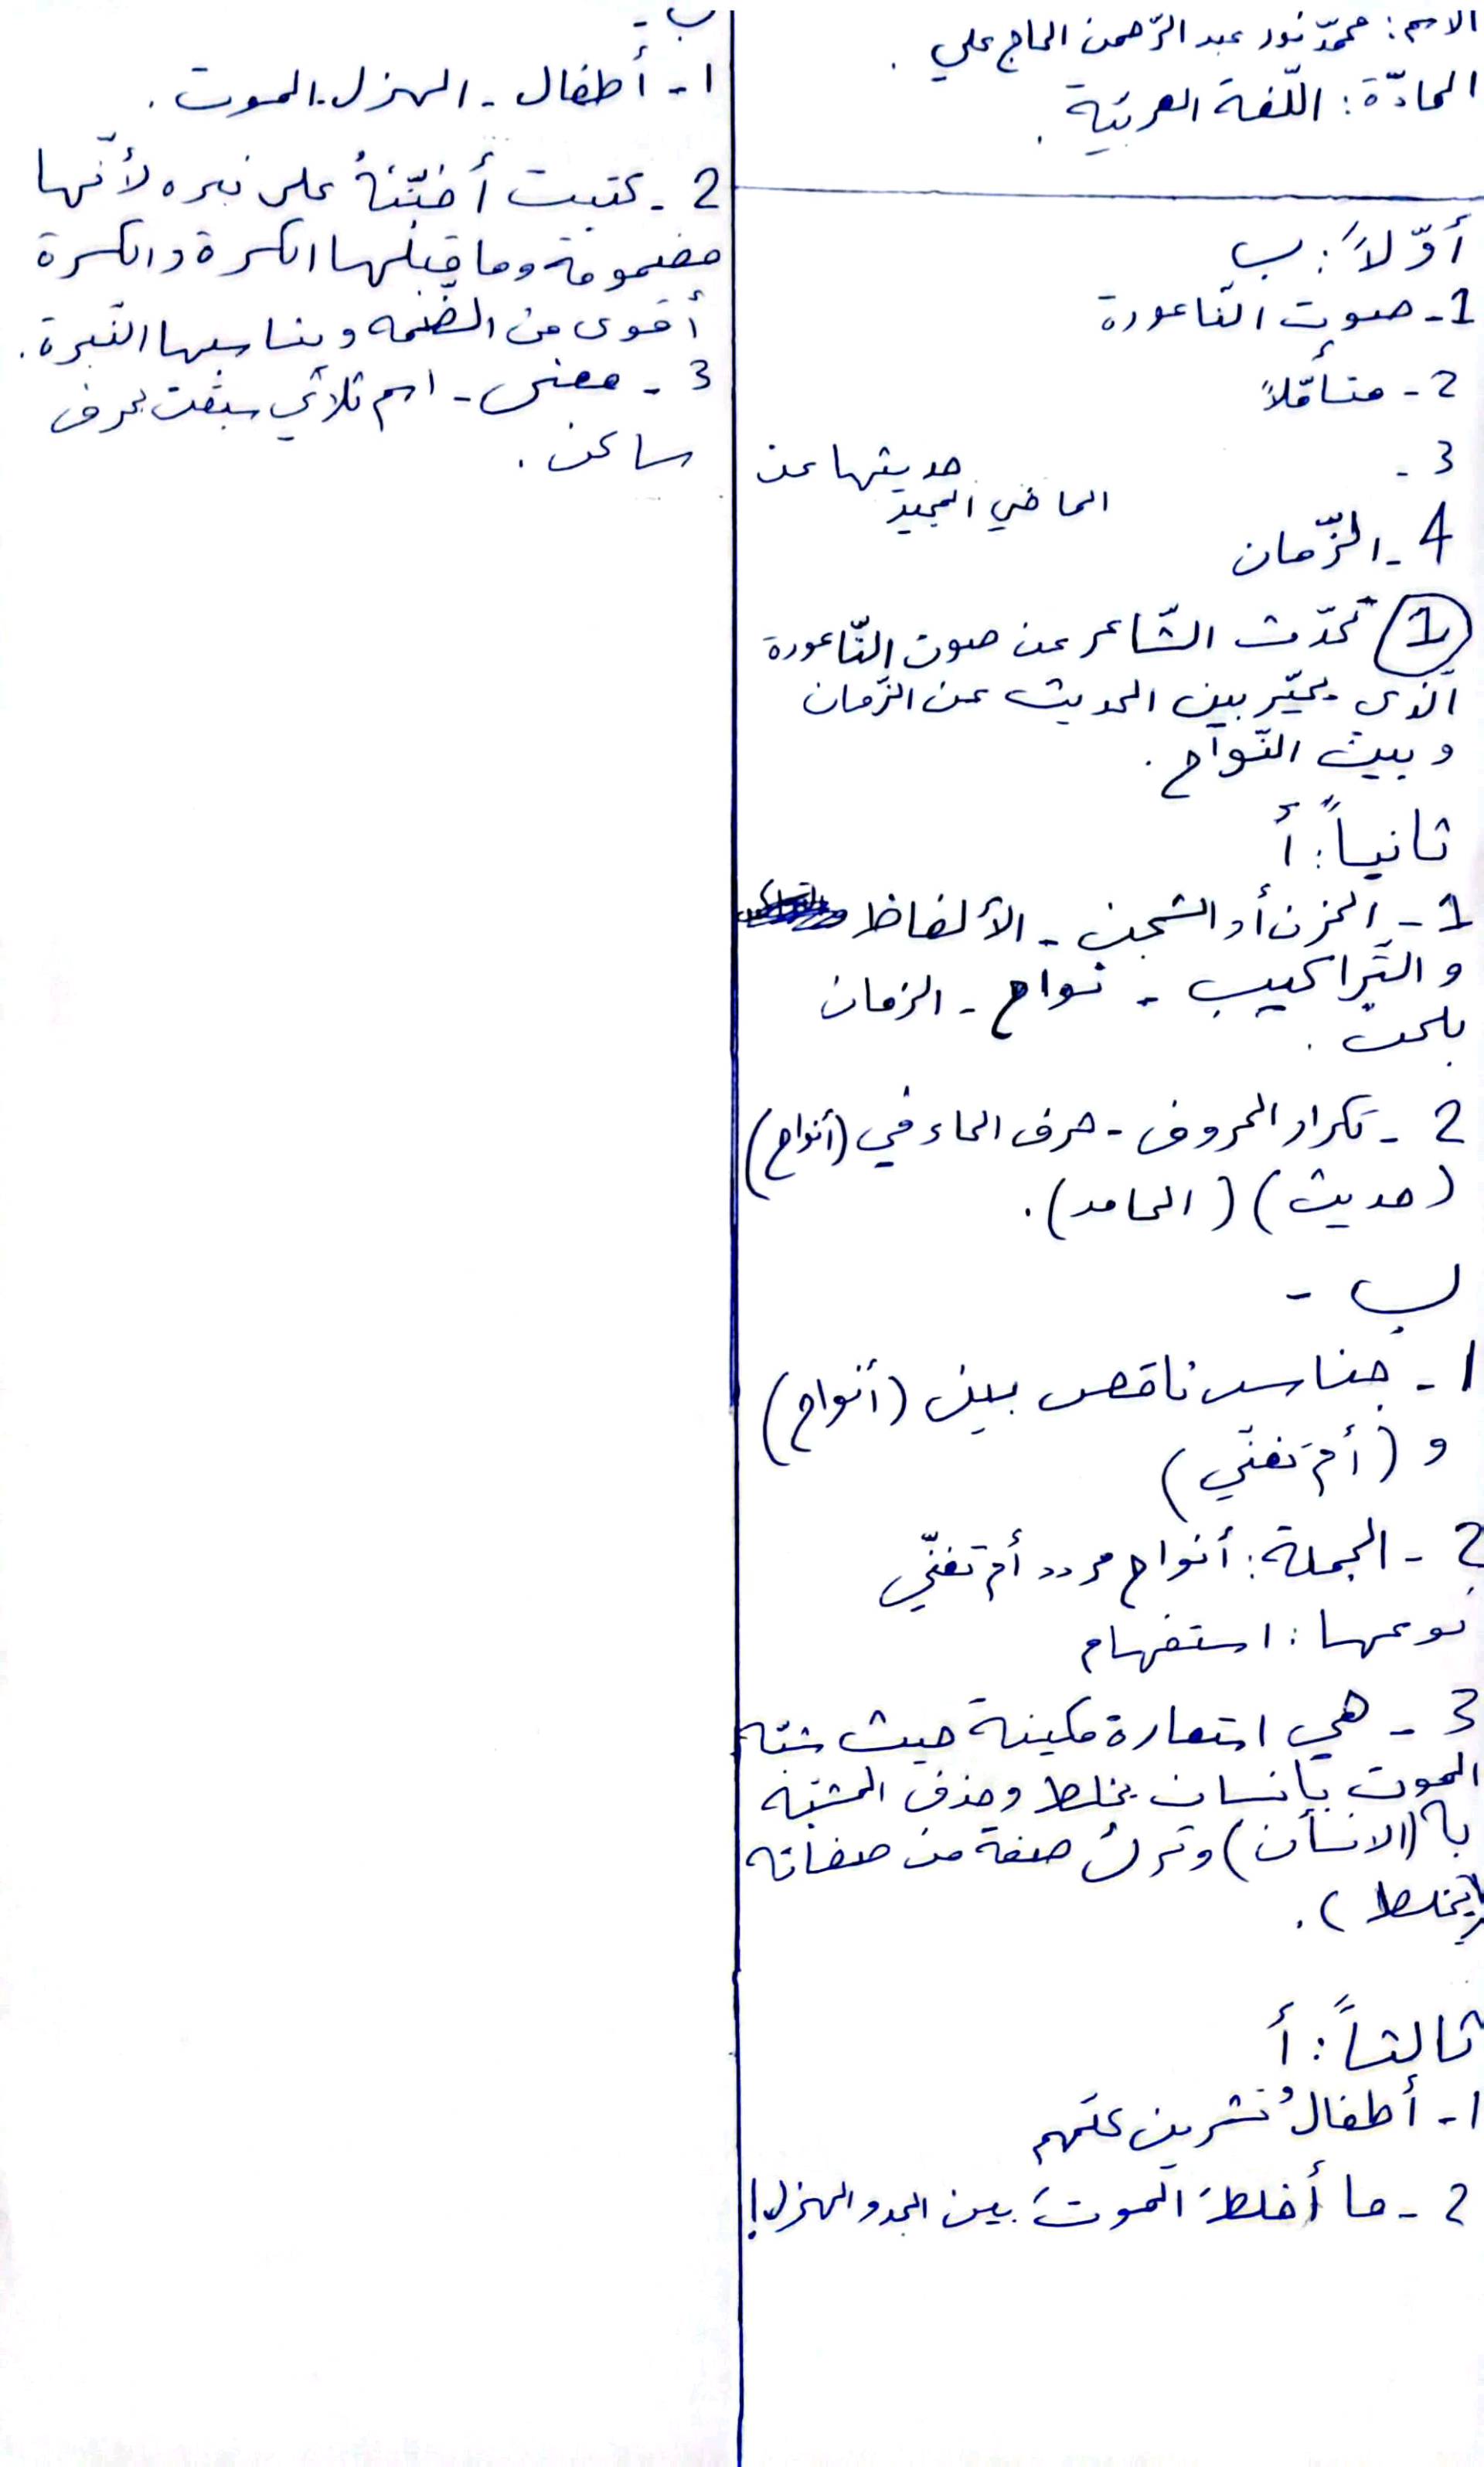 الاسم: محمّد نور عبد الرّحمن الحاج علي .
المادّة: اللّغة العربيّة .
أوّلاً: ب
1- صوت النّاعورة
2- متأمّلاً
3- حديثها عن
الماضي المجيد
4- الزّمان
1 تحدّث الشّاعر عن صوت النّاعورة
الّذي يحيّر بين الحديث عن الزّمان
و بين النّواح .
ثانياً: أ
1- الحزن أو الشجن - الألفاظ
و التّراكيب - نواح - الزمان
بلحن .
2- تكرار الحروف - حرف الحاء في (أنواح)
(حديث) (الحامد) .
ب -
1- جناس ناقص بين (أنواح)
و (أم تغنّي)
2- الجملة: أنواح مردد أم تغنّي
نوعها: استفهام
3- هي استعارة مكينة حيث شبّه
الموت بإنسان يخلط وحذف المشبّه
به (الانسان) وترك صفة من صفاته
(يخلط) .
ثالثاً: أ
1- أطفالُ تشرين علّمهم
2- ما أخلطَ الموتَ بين الجد و الهزل!
ب -
1- أطفال - الهزل - الموت .
2- كتبت أختنةُ على نبره لأنّها
مضمومة وما قبلها الكسرة والكسرة
أقوى من الضّمه ويناسبها النّبرة .
3- معنى - اسم ثلاثي سبقت بحرف
ساكن .